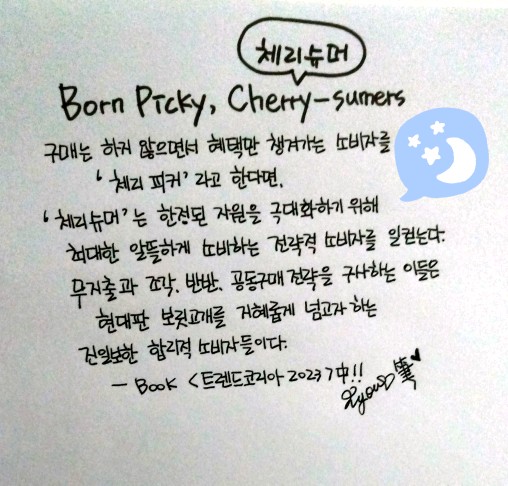 체리슈머
Born Picky, Cherry-sumers
구매는 하지 않으면서 혜택만 챙겨가는 소비자를
'체리 피커' 라고 한다면,
'체리슈머'는 한정된 자원을 극대화하기 위해
최대한 알뜰하게 소비하는 전략적 소비자를 일컫는다.
무지출과 조각, 반반, 공동구매 전략을 구사하는 이들은
현대판 보릿고개를 지혜롭게 넘고자 하는
진일보한 합리적 소비자들이다.
- BOOK <트렌드코리아 2023> 中!!
筆♥